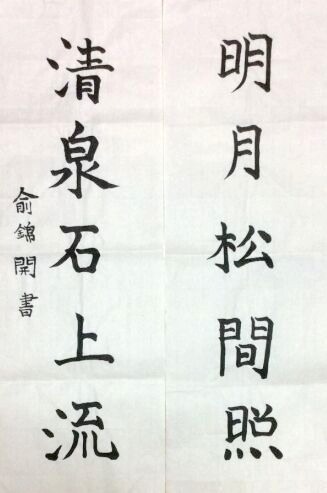 明月松間照
清泉石上流
俞錦開書